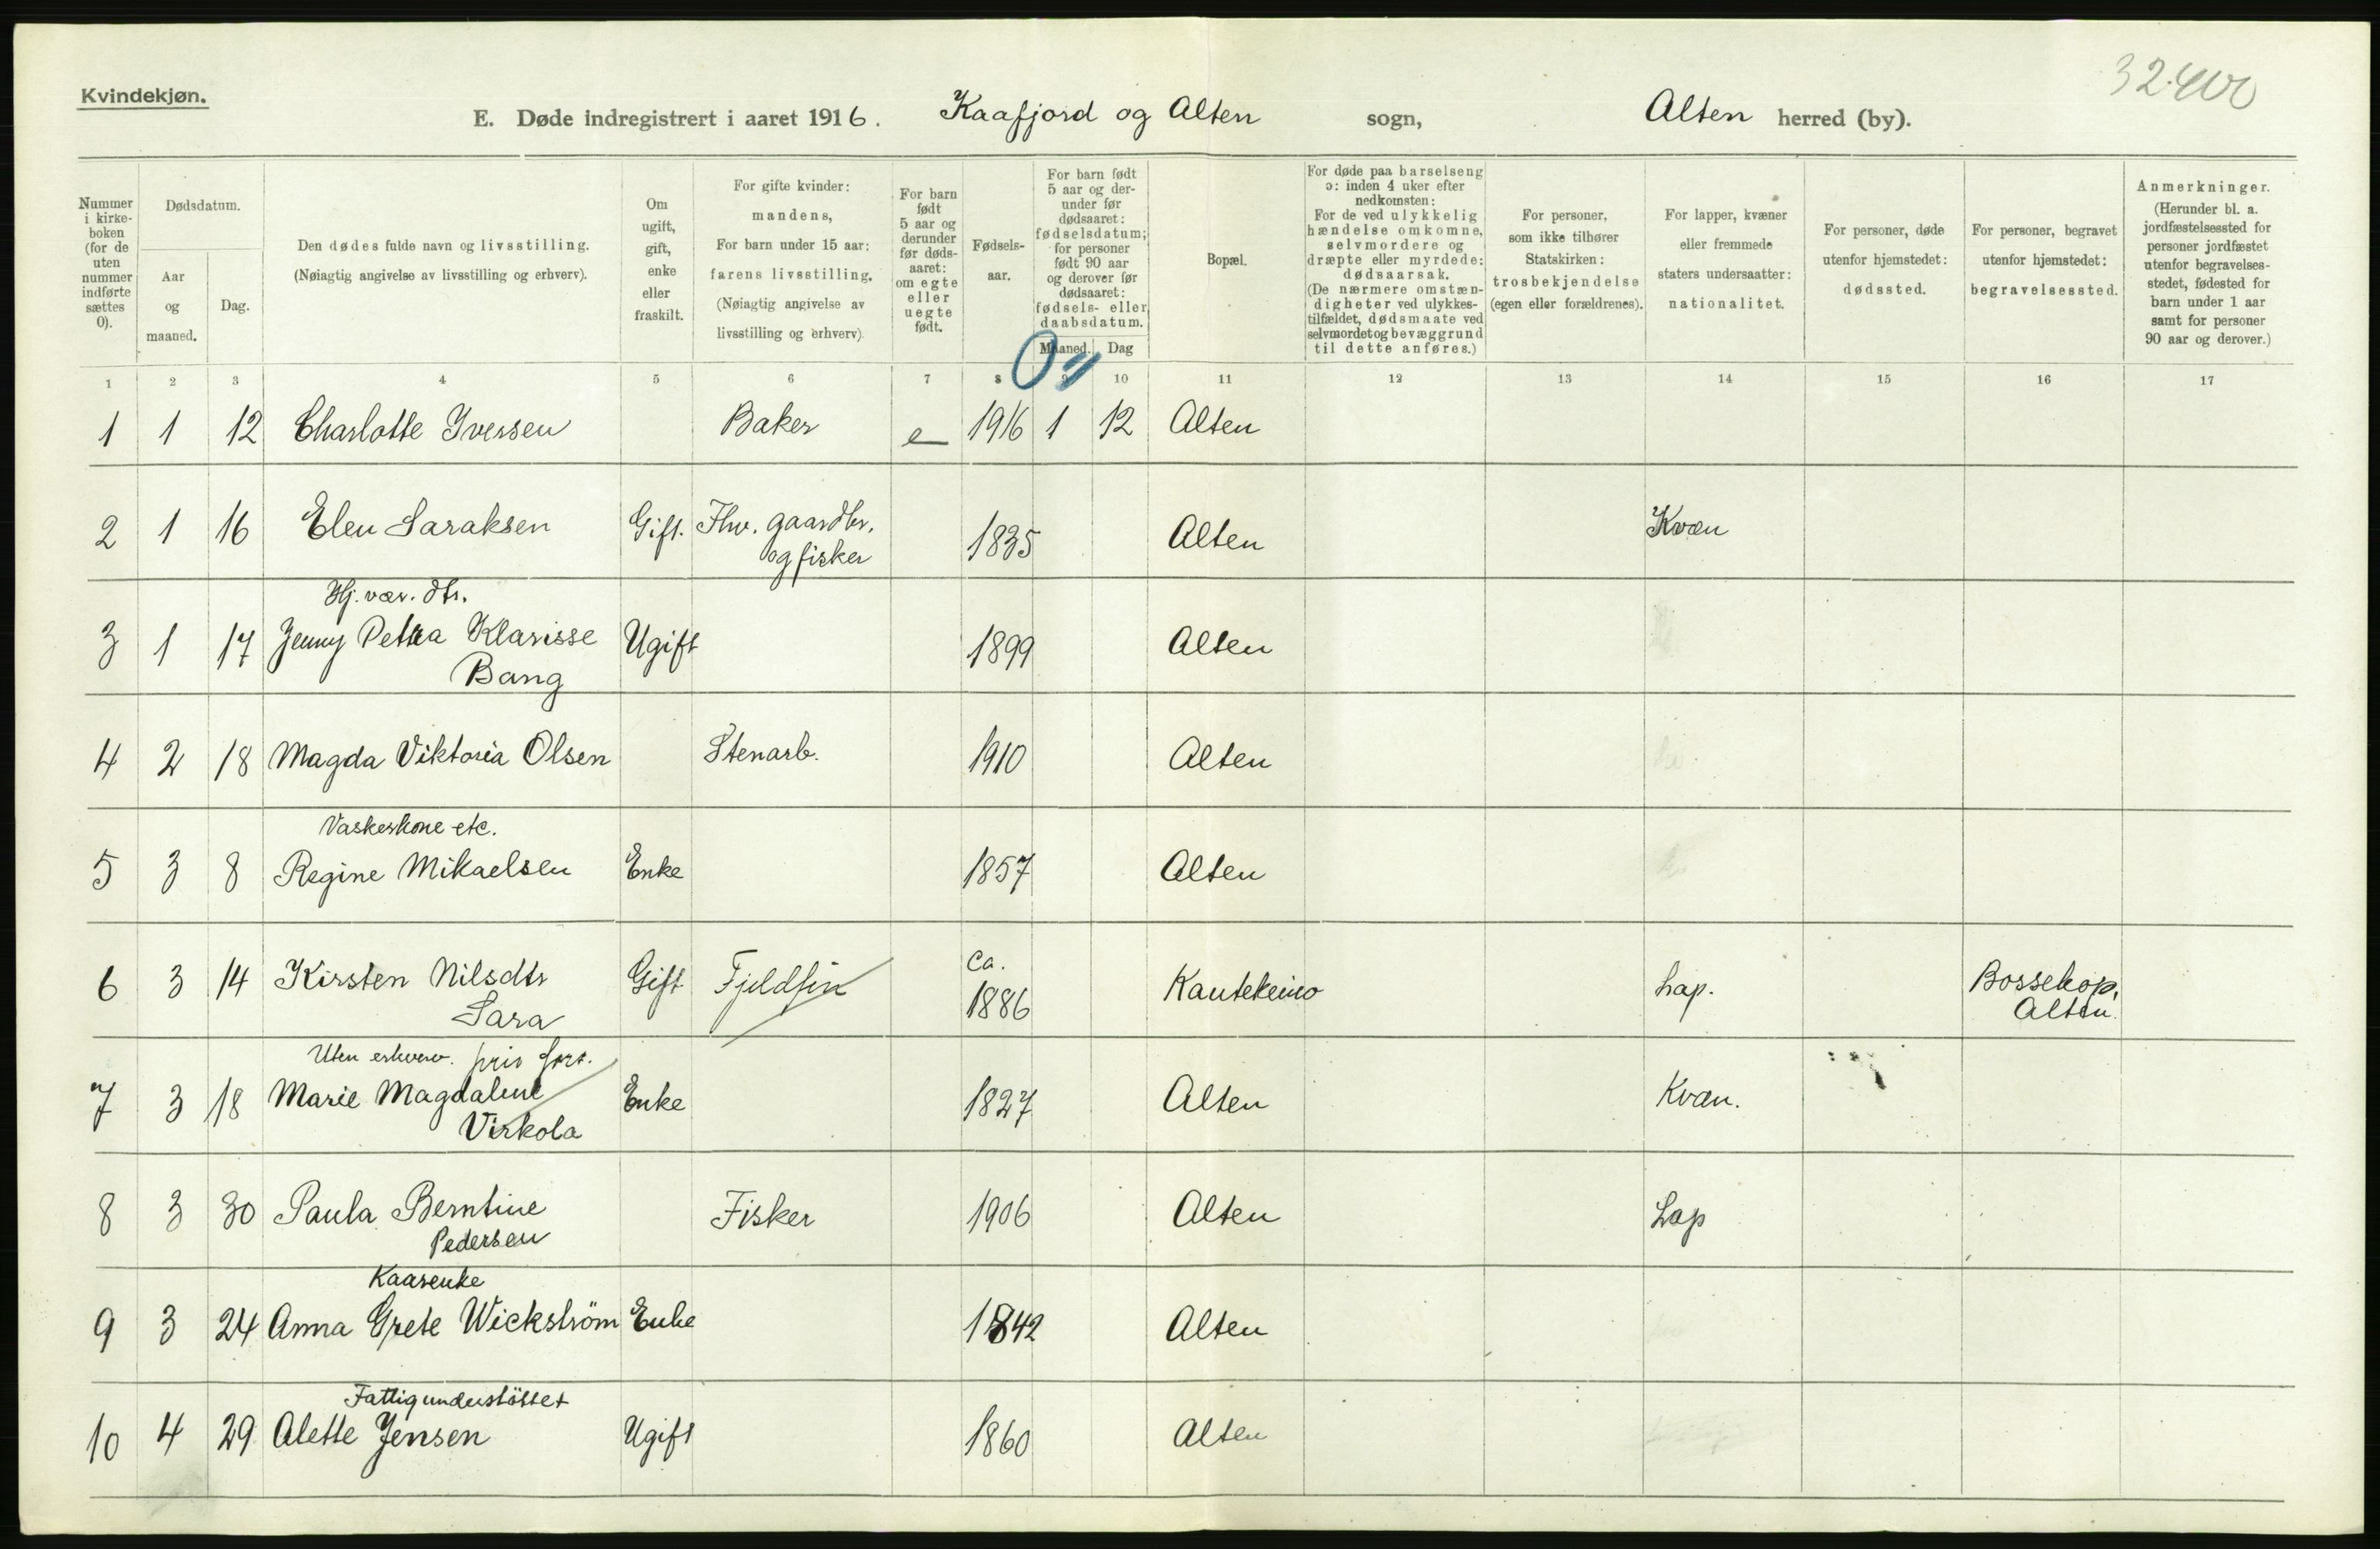 32.400
Kvindekjøn.
E. Døde indregistrert i aaret 1916. Kaafjord og Alten sogn, Alten herred (by).
Nummer i kirke-boken (for de uten nummer indførte sættes 0).
Dødsdatum.
Aar og maaned.
Dag.
Den dødes fulde navn og livsstilling.
(Nøiagtig angivelse av livsstilling og erhverv).
Om ugift, gift, enke eller fraskilt.
For gifte kvinder: mandens,
For barn under 15 aar: farens livsstilling.
(Nøiagtig angivelse av livsstilling og erhverv)
For barn født 5 aar og derunder før døds-aaret: om egte eller uegte født.
Fødsels-aar.
For barn født 5 aar og der-under før dødsaaret: fødselsdatum; for personer født 90 aar og derover før dødsaaret: fødsels- eller daabsdatum.
Maaned. Dag
Bopæl.
For døde paa barselseng ɔ: inden 4 uker efter nedkomsten:
For de ved ulykkelig hændelse omkomne, selvmordere og dræpte eller myrdede: dødsaarsak.
(De nærmere omstæn-digheter ved ulykkes-tilfældet, dødsmaate ved selvmordet og bevæggrund til dette anføres.)
For personer, som ikke tilhører Statskirken: trosbekjendelse (egen eller forældrenes).
For lapper, kvæner eller fremmede staters undersaatter: nationalitet.
For personer, døde utenfor hjemstedet: dødssted.
For personer, begravet utenfor hjemstedet: begravelsessted.
Anmerkninger.
(Herunder bl. a. jordfæstelsessted for personer jordfæstet utenfor begravelses-stedet, fødested for barn under 1 aar samt for personer 90 aar og derover.)
1 2 3 4 5 6 7 8 9 10 11 12 13 14 15 16 17
1 1 12 Charlotte Iversen Baker e 1916 1 12 Alten
2 1 16 Elen Saraksen Gift. Fhv. gaardbr. 1835 Alten Kvæn
og fisker
Hj. vær. dtr.
3 1 17 Jenny Petra Klarisse Ugift 1899 Alten
Bang
4 2 18 Magda Viktoria Olsen Stenarb. 1910 Alten
Vaskerkone etc.
5 3 8 Regine Mikaelsen Enke 1857 Alten
6 3 14 Kirsten Nilsdtr Gift Fjeldfin ca. 1886 Kautokeino Lap. Bossekop,
Sara Alten.
Uten erhverv. priv fors.
7 3 18 Marie Magdalene Enke 1827 Alten Kvæn.
Virkola
8 3 30 Paula Berntine Fisker 1906 Alten Lap
Pedersen
Kaarenke
9 3 24 Anna Grete Wickström Enke 1842 Alten
Fattigunderstöttet
10 4 29 Alette Jensen Ugift 1860 Alten